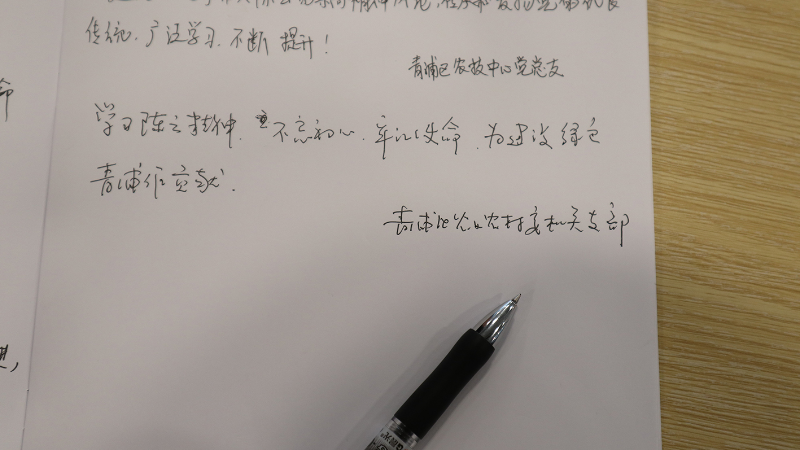 传统，广泛学习，不断提升！
青浦区农技中心党总支
学习陈云精神，不忘初心，牢记使命，为建设绿色
青浦作贡献．
青浦区农业农村委机关支部